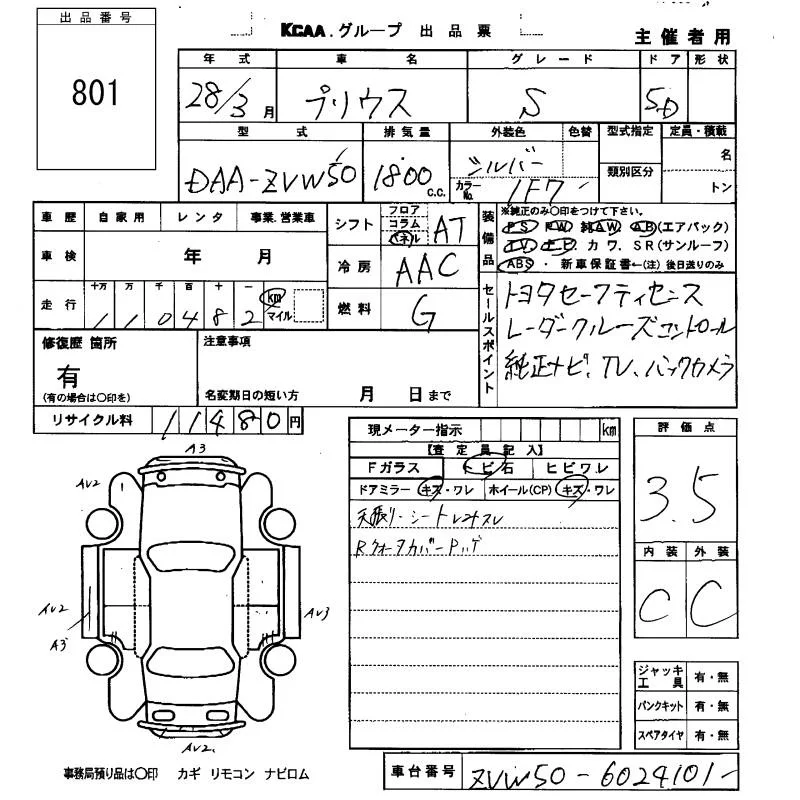 出品番号
801
KCAA.グループ 出品票
主催者用
年式 車名 グレード ドア 形状
28/3月 プリウス S 5D
型式 排気量 外装色 色替 型式指定 定員・積載
DAA-ZVW50 1800 c.c. シルバー カラーNo. 1F7 類別区分 名 トン
車歴 自家用 レンタ 事業.営業車
車検 年 月
走行 十万 万 千 百 十 一
110482 km マイル
シフト フロア コラム パネル AT
冷房 AAC
燃料 G
装備品
※純正のみ○印をつけて下さい。
PS PW 純AW. AB(エアバック)
TV ナビ カワ. SR(サンルーフ)
ABS・ 新車保証書←(注) 後日送りのみ
セールスポイント
トヨタセーフティセンス
レーダークルーズコントロール
純正ナビ、TV、バックカメラ
修復歴 箇所
有
(有の場合は○印を)
注意事項
名変期日の短い方 月 日まで
リサイクル料 11480円
現メーター指示 km
【査定員記入】
Fガラス トビ石 ヒビワレ
ドアミラー キズ・ワレ ホイール(CP) キズ・ワレ
天張リーシート
Rクォーターカバー
評価点
3.5
内装 外装
C C
A3
AV2
AV2
A3
AV3
AV2
ジャッキ工具 有・無
パンクキット 有・無
スペアタイヤ 有・無
事務局預り品は○印 カギ リモコン ナビロム
車台番号 ZVW50-6024101-